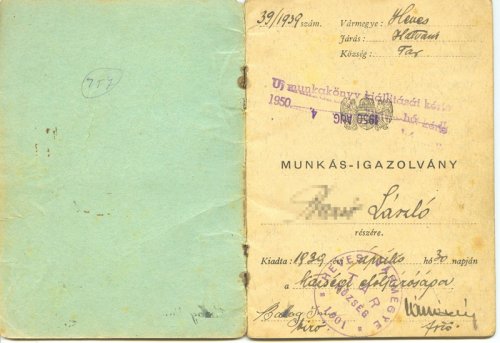 757
39/1939 szám.
Vármegye: Heves
Járás: Hatvani
Község: Tar
Új munkakönyv kiállítását kérte
1950.
1950 AUG 4.
MUNKÁS-IGAZOLVÁNY
László
részére.
Kiadta: 1939 évi április hó 30 napján
a községi elöljárósága
HEVES VÁRMEGYE
TAR KÖZSÉG
1901
bíró